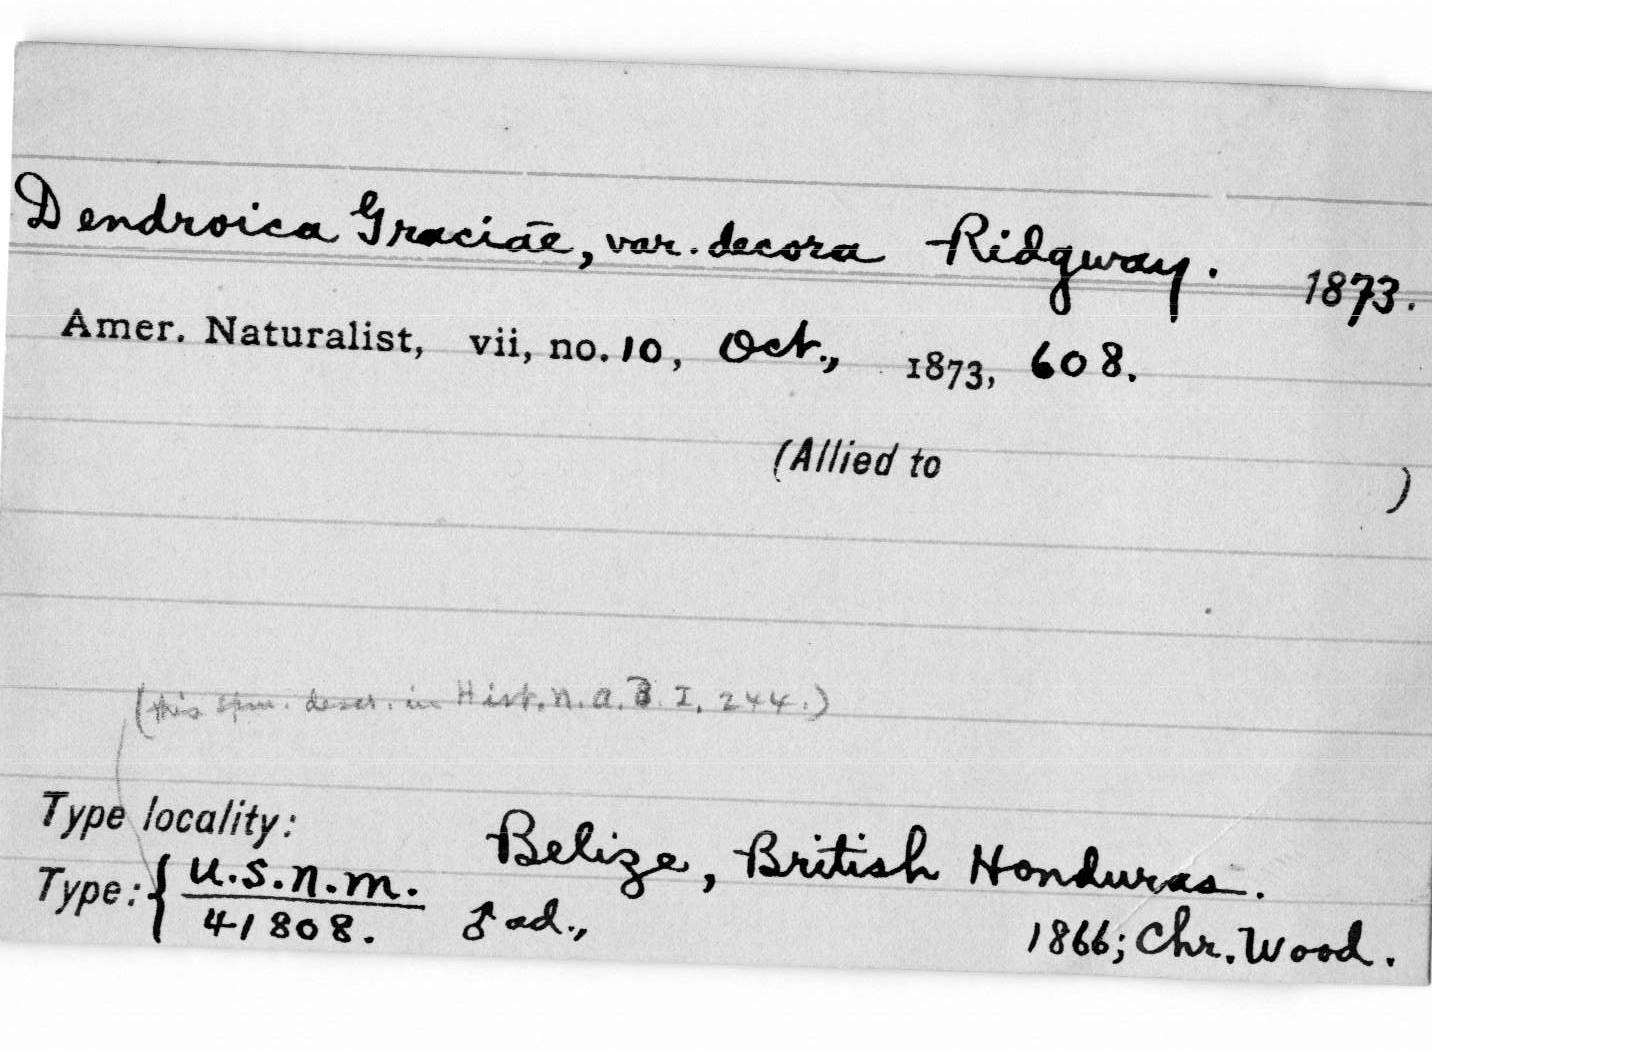 Dendroica Graciae, var. decora Ridgway. 1873.
Amer. Naturalist, vii, no. 10, Oct., 1873, 608.
(Allied to )
(this spm. descr. in Hist. N. A. B. I, 244.)
Type locality: Belize, British Honduras.
Type: { U.S.N.M. 41808. ♂ ad., 1866; Chr. Wood.